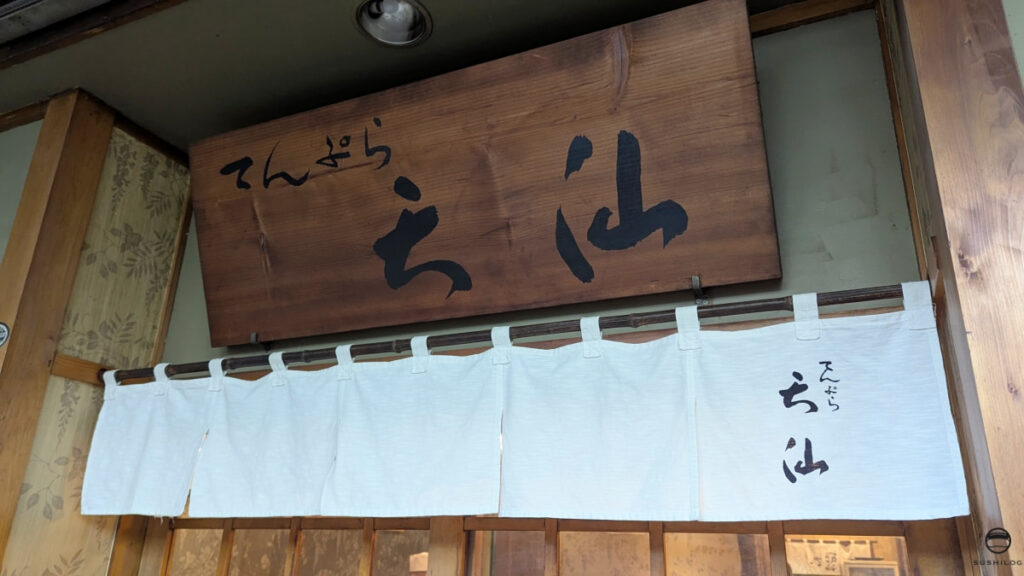 てんぷら
天仙
てんぷら
天仙
SUSHILOG